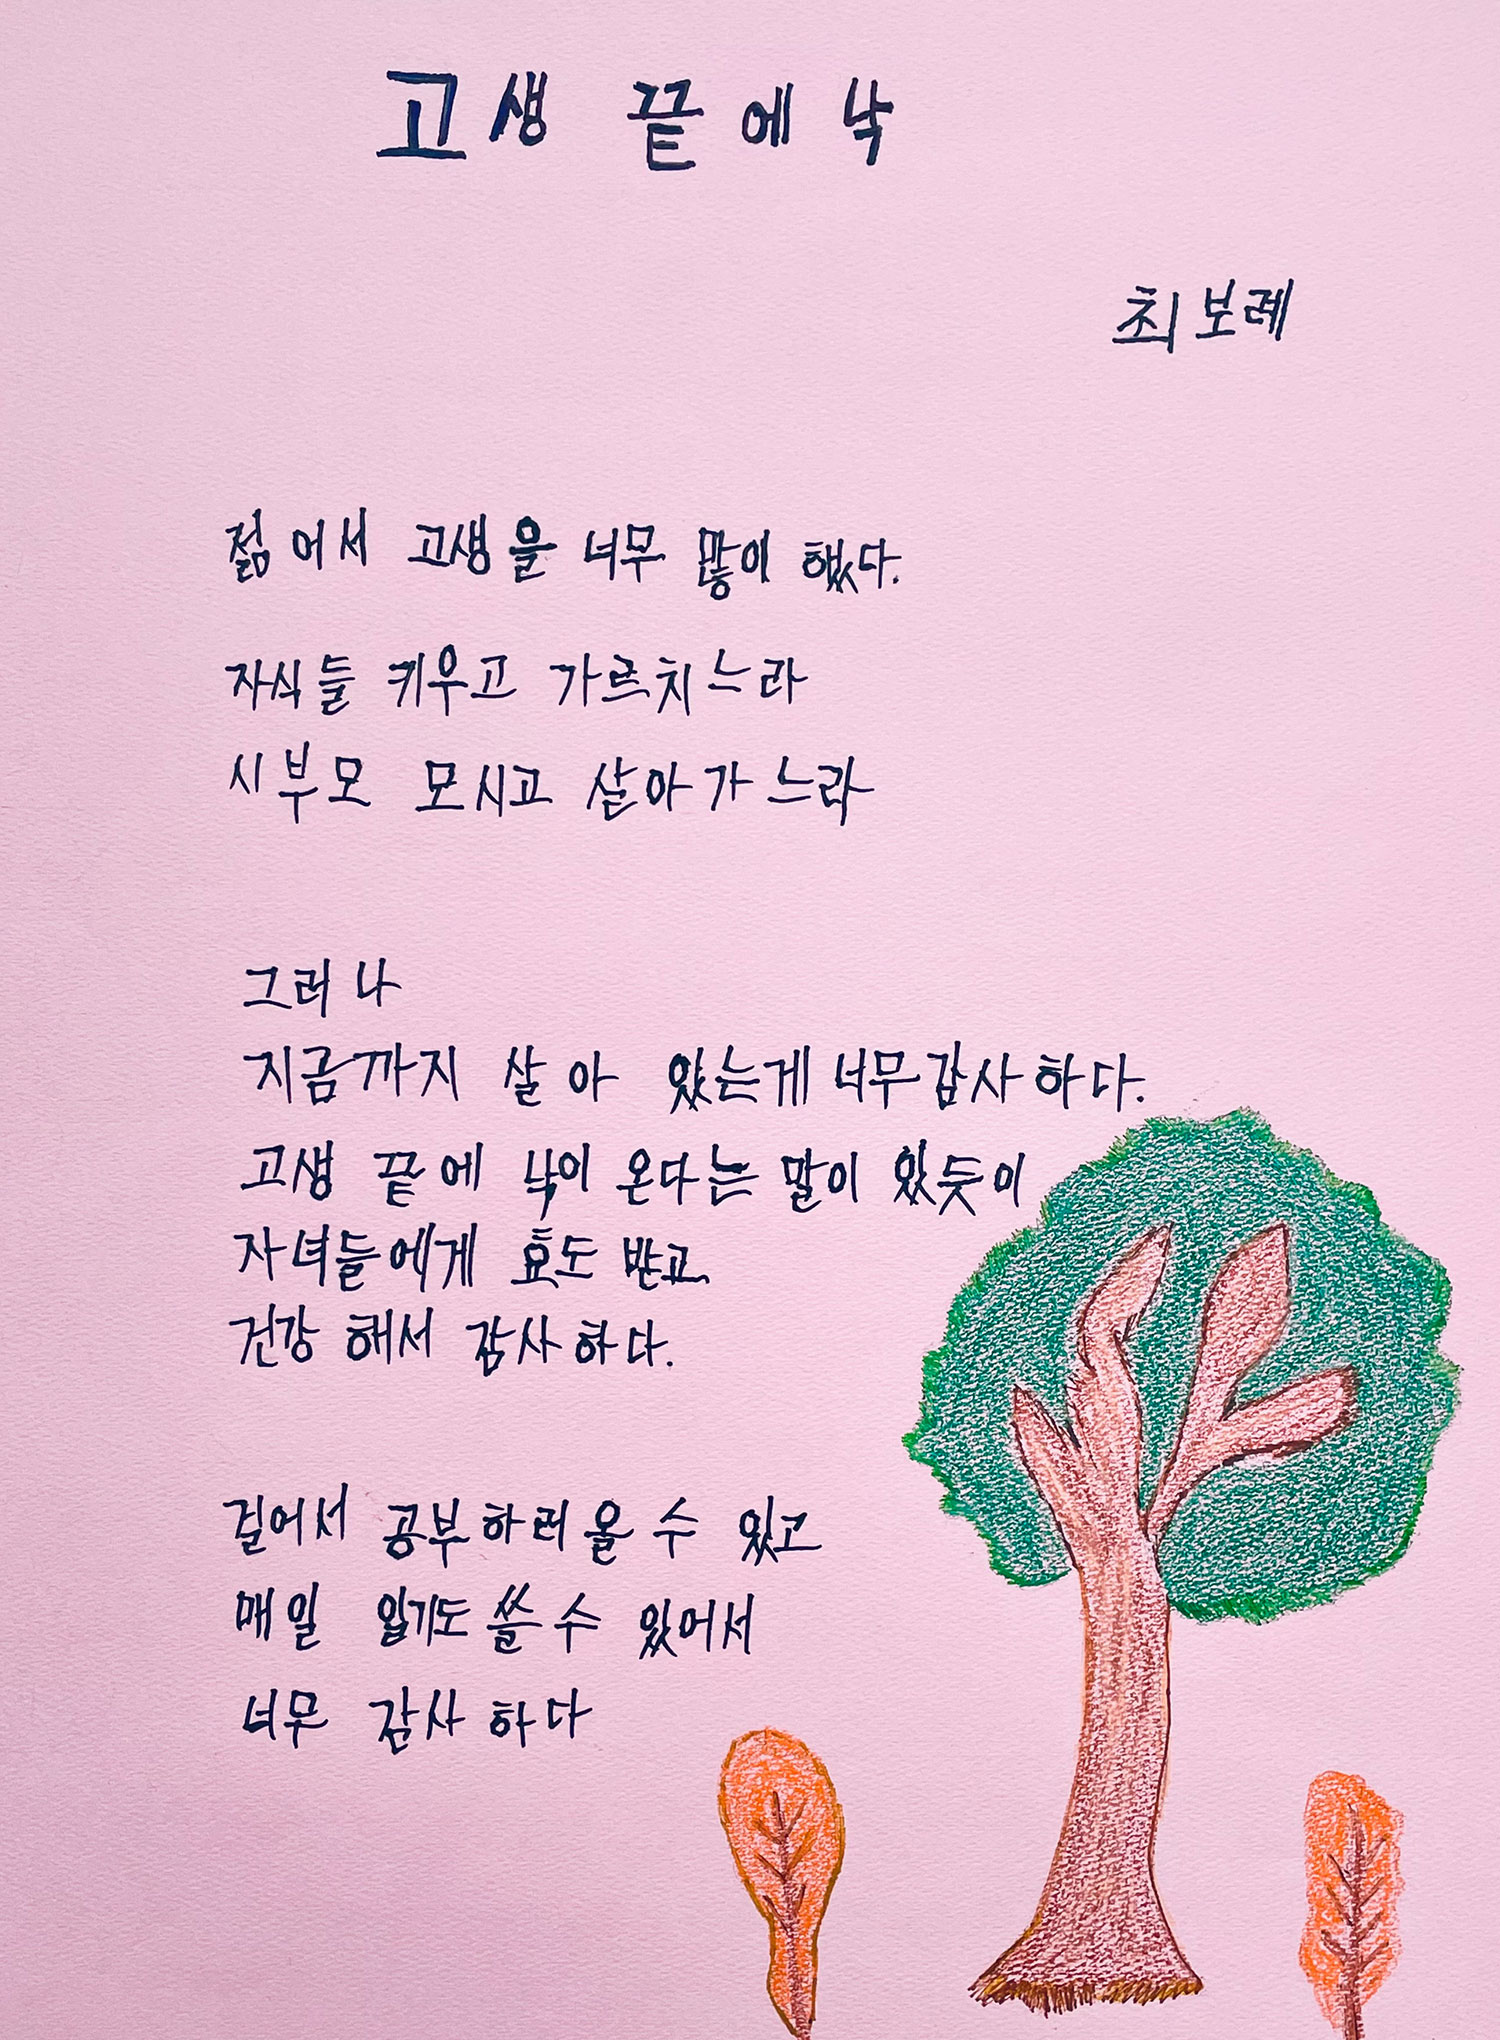 고생 끝에 낙
최보례
젊어서 고생을 너무 많이 했다.
자식들 키우고 가르치느라
시부모 모시고 살아가느라
그러나
지금까지 살아 있는게 너무감사하다.
고생 끝에 낙이 온다는 말이 있듯이
자녀들에게 효도 받고
건강 해서 감사하다.
걸어서 공부하러 올 수 있고
매일 일기도 쓸 수 있어서
너무 감사하다